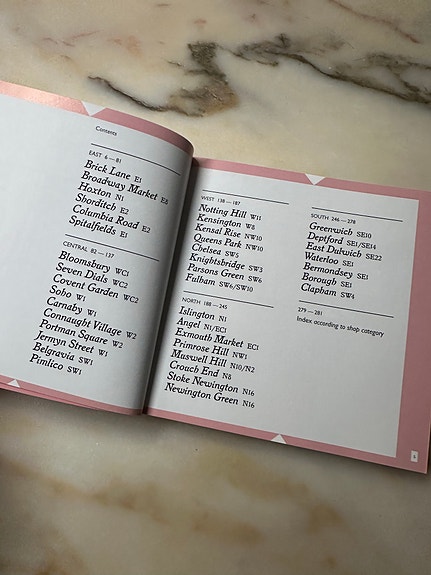 Contents
EAST 6 — 81
Brick Lane E1
Broadway Market E8
Hoxton N1
Shorditch E2
Columbia Road E2
Spitalfields E1
CENTRAL 82 — 137
Bloomsbury WC1
Seven Dials WC2
Covent Garden WC2
Soho W1
Carnaby W1
Connaught Village W2
Portman Square W2
Jermyn Street W1
Belgravia SW1
Pimlico SW1
WEST 138 — 187
Notting Hill W11
Kensington W8
Kensal Rise NW10
Queens Park NW10
Chelsea SW5
Knightsbridge SW3
Parsons Green SW6
Fulham SW6/SW10
NORTH 188 — 245
Islington N1
Angel N1/EC1
Exmouth Market EC1
Primrose Hill NW1
Muswell Hill N10/N2
Crouch End N8
Stoke Newington N16
Newington Green N16
SOUTH 246 — 278
Greenwich SE10
Deptford SE1/SE14
East Dulwich SE22
Waterloo SE1
Bermondsey SE1
Borough SE1
Clapham SW4
279 — 281
Index according to shop category